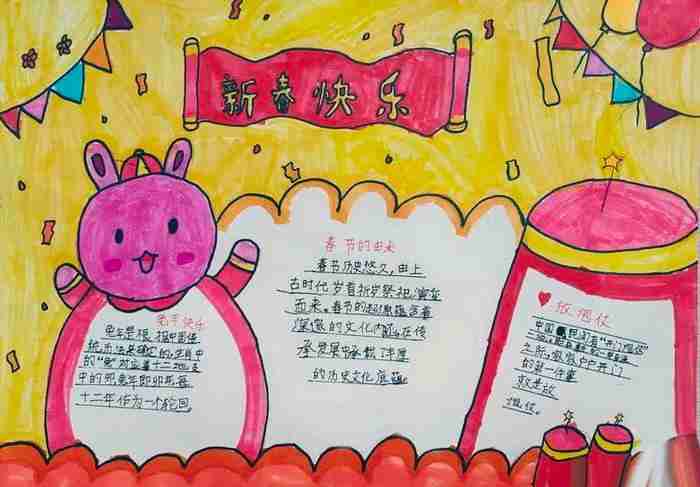 新春快乐
兔年快乐
兔年是根据中国传
统历法来确定的,生肖中
的“兔”对应着十二地支
中的卯,兔年即卯年,每
十二年作为一个轮回
春节的由来
春节历史悠久,由上
古时代岁首祈岁祭祀演变
而来。春节的起源蕴含着
深邃的文化内涵,在传
承发展中承载了丰厚
的历史文化底蕴。
放爆仗
中国民间有“开门爆仗”
之际,家家户户开门
的第一件事
就是放
爆仗。